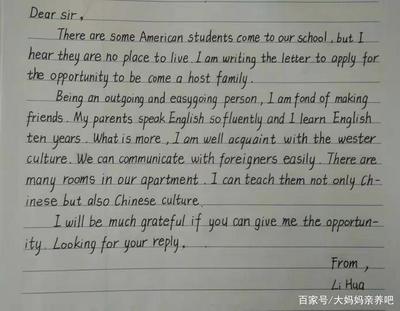 Dear sir,
There are some American students come to our school, but I
hear they are no place to live. I am writing the letter to apply for
the opportunity to be come a host family.
Being an outgoing and easygoing person, I am fond of making
friends. My parents speak English so fluently and I learn English
ten years. What is more, I am well acquaint with the wester
culture. We can communicate with foreigners easily. There are
many rooms in our apartment. I can teach them not only Ch-
inese but also Chinese culture.
I will be much grateful if you can give me the opportun-
ity. Looking for your reply.
From,
Li Hua
百家号/大妈妈亲养吧